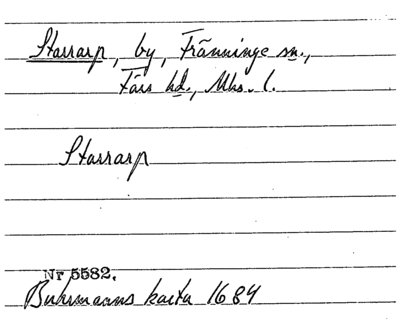 Starrarp, by, Tränninge sn.,
Färs hd., Mhs. l.
Starrarp
Nr 5582.
Buhrmanns karta 1684